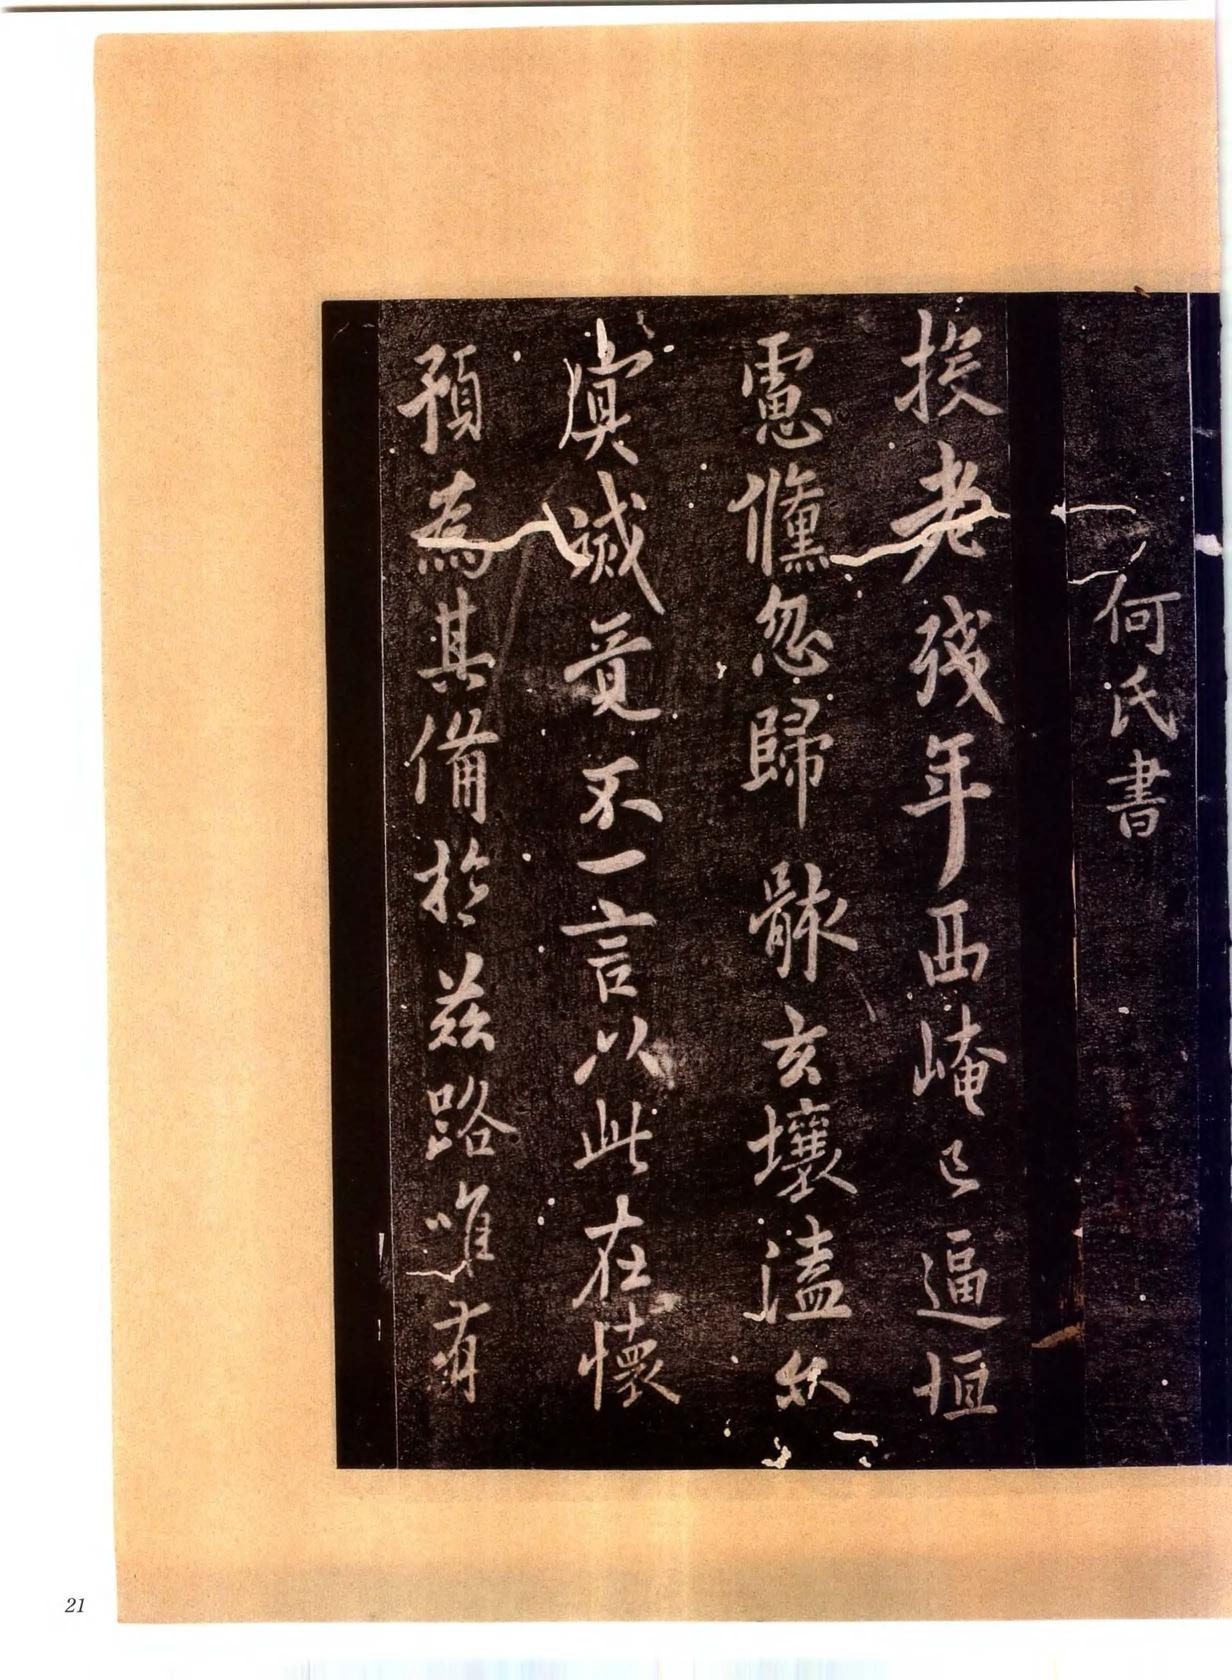 何氏書
投老殘年西崦已逼恒
慮儻忽歸骸玄壤溘尒
冥滅竟不一言以此在懷
預為其備於茲路唯有
21